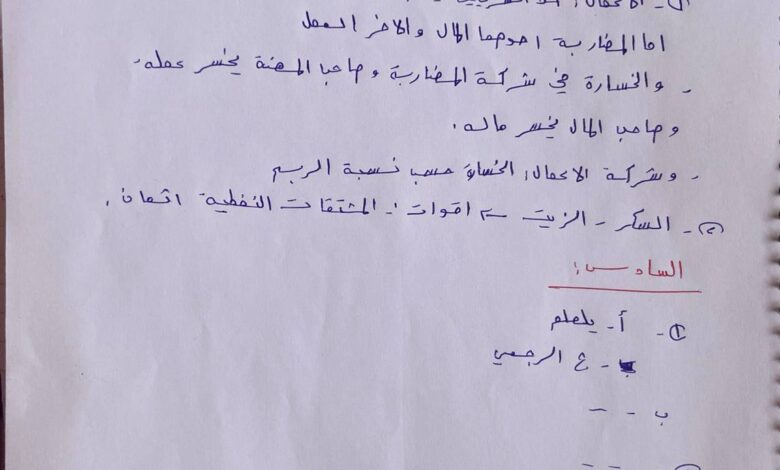 ١- الاعمال:
اما المضاربة احدهما المال والاخر العمل
- والخسارة في شركة المضاربة وصاحب المهنة يخسر عمله.
وصاحب المال يخسر ماله.
- وشركة الاعمال: الخسارة حسب نسبة الربح
٢- السكر - الزيت اقوات :- المشتقات النفطية اثمان.
السادس:
١- أ- يلملم
ع الرجعي
ب - -